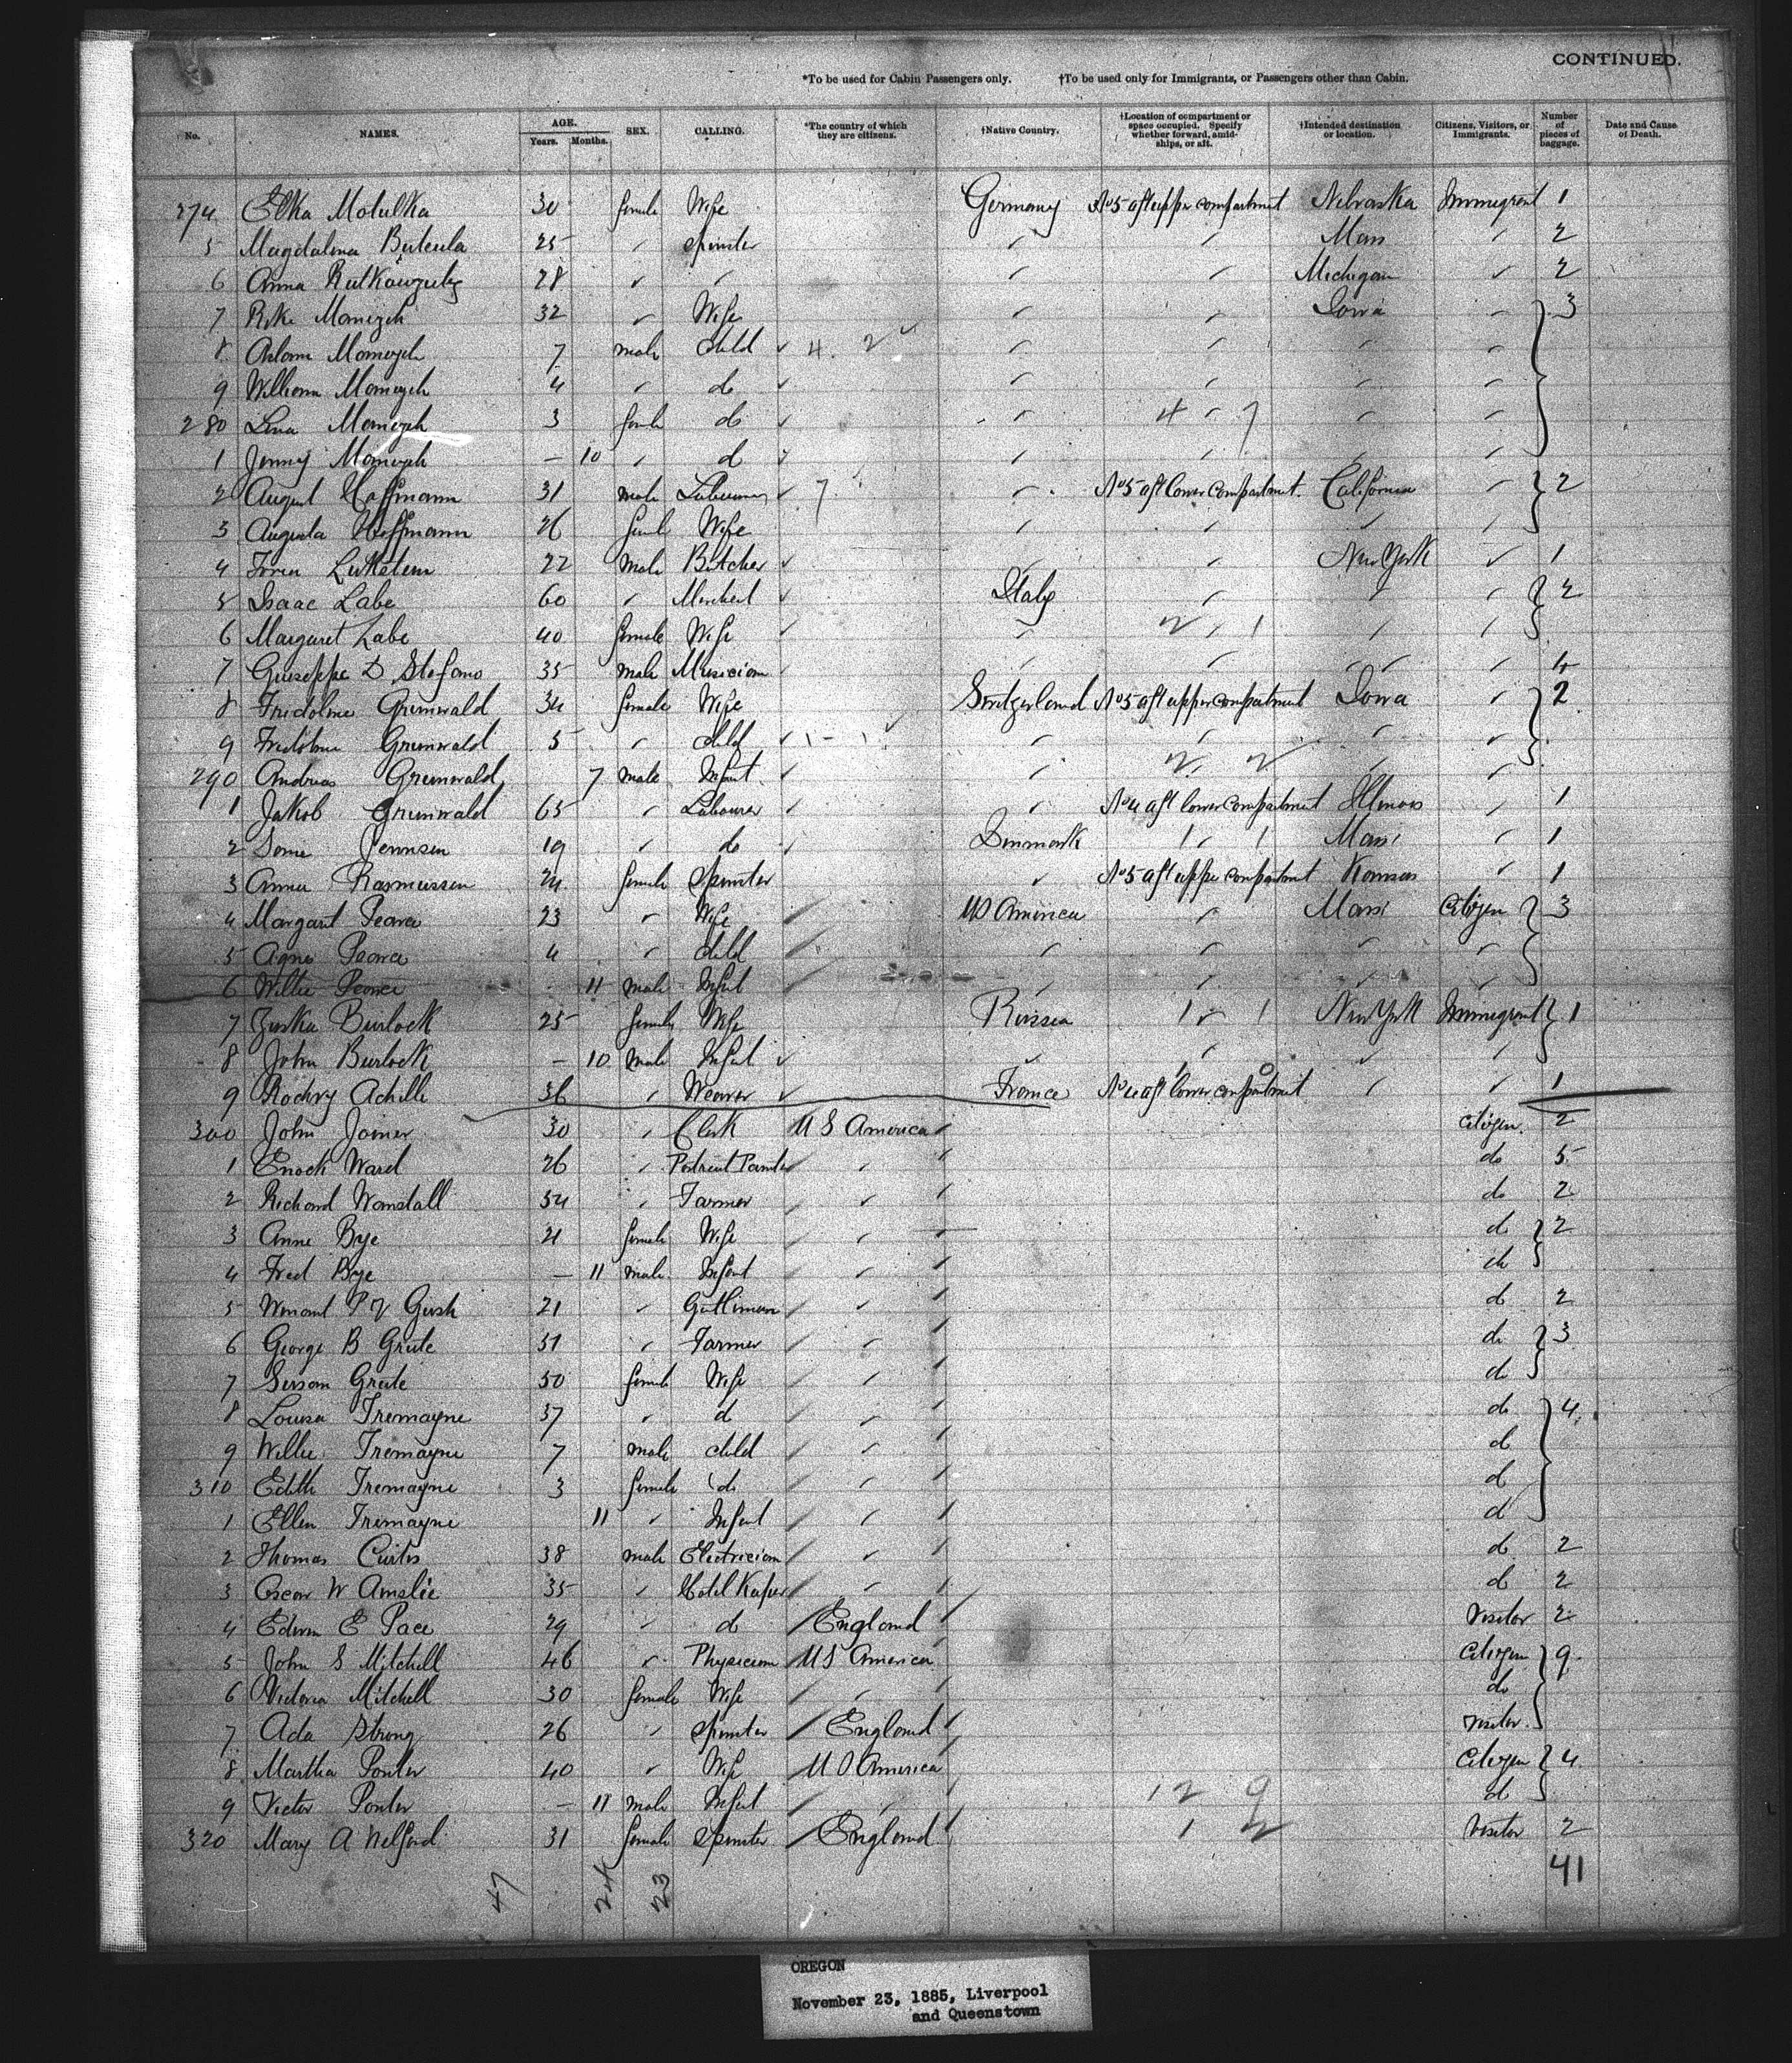 CONTINUED.
*To be used for Cabin Passengers only. †To be used only for Immigrants, or Passengers other than Cabin.
No. NAMES. AGE. Years. Months. SEX. CALLING. *The country of which they are citizens. †Native Country. †Location of compartment or space occupied. Specify whether forward, amidships, or aft. †Intended destination or location. Citizens, Visitors, or Immigrants. Number of pieces of baggage. Date and Cause of Death.
274 Elka Motulka 30 female Wife Germany No 5 aft upper compartment Nebraska Immigrant 1
5 Magdalena 25 " Spinster " " Mass " 2
6 Anna 28 " " " " Michigan " 2
7 32 " Wife " " Iowa " 3
8 Adam 7 male Child 4 2 " " " "
9 William 4 " do " " " "
280 Lina 3 female do " 4 " 7 " "
1 Jenny – 10 " do " " " "
2 August Hoffmann 31 male Labourer 7 " No 5 aft lower compartment California " 2
3 Augusta Hoffmann 26 female Wife " " " "
4 22 male Butcher " " New York " 1
5 Isaac Labe 60 " Merchant Italy " " " 2
6 Margaret Labe 40 female Wife " 2 " 1 " "
7 Guiseppe D Stefano 35 male Musician " " " " 4
8 Fridoline Grunwald 34 female Wife Switzerland No 5 aft upper compartment Iowa " 2
9 Fridoline Grunwald 5 " child 1 – 1 " " " "
290 Andreas Grunwald 7 male Infant " 2 " 2 " "
1 Jakob Grunwald 65 " Labourer " No 4 aft lower compartment Illinois " 1
2 19 " do Denmark 1 " 1 Mass " 1
3 Anna Rasmussen 24 female Spinster " No 5 aft upper compartment Kansas " 1
4 Margaret Pearce 23 " Wife US America " Mass Citizen 3
5 Agnes Pearce 4 " child " " " "
6 Willie Pearce 11 male Infant " " " "
7 Zuska Burlock 25 female Wife Russia 1 " 1 New York Immigrant 1
8 John Burlock – 10 male Infant " " " "
9 Achille 36 " Weaver France No 4 aft lower compartment " " 1
300 John Joiner 30 " Clerk U S America Citizen 2
1 Enoch Ward 26 " Portrait Painter " do 5
2 Richard Wanstall 54 " Farmer " do 2
3 Anne Bye 21 female Wife " do 2
4 Fred Bye – 11 male Infant " do
5 21 " Gentleman " do 2
6 George B Grute 51 " Farmer " do 3
7 Grute 50 female Wife " do
8 Louisa Tremayne 37 " do " do 4
9 Willie Tremayne 7 male child " do
310 Edith Tremayne 3 female do " do
1 Ellen Tremayne 11 " Infant " do
2 Thomas Curtis 38 male Electrician " do 2
3 Oscar W Amslie 35 " Hotel Keeper " do 2
4 Edwin E Pace 29 " do England Visitor 2
5 John S Mitchell 46 " Physician U S America Citizen 9
6 Victoria Mitchell 30 female Wife " do
7 Ada Strong 26 " Spinster England Visitor
8 Martha Ponter 40 " Wife U S America Citizen 4
9 Victor Ponter – 11 male Infant " 12 9 do
320 Mary A Welford 31 female Spinster England 1 2 Visitor 2
47 24 23 41
OREGON
November 23, 1885, Liverpool
and Queenstown